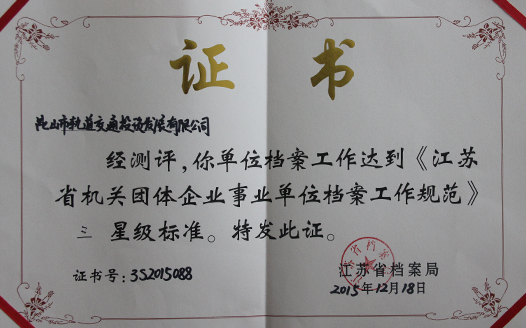 证书
昆山市轨道交通投资发展有限公司
经测评,你单位档案工作达到《江苏
省机关团体企业事业单位档案工作规范》
三 星级标准。特发此证。
证书号:3S2015088
江苏省档案局
2015年12月18日